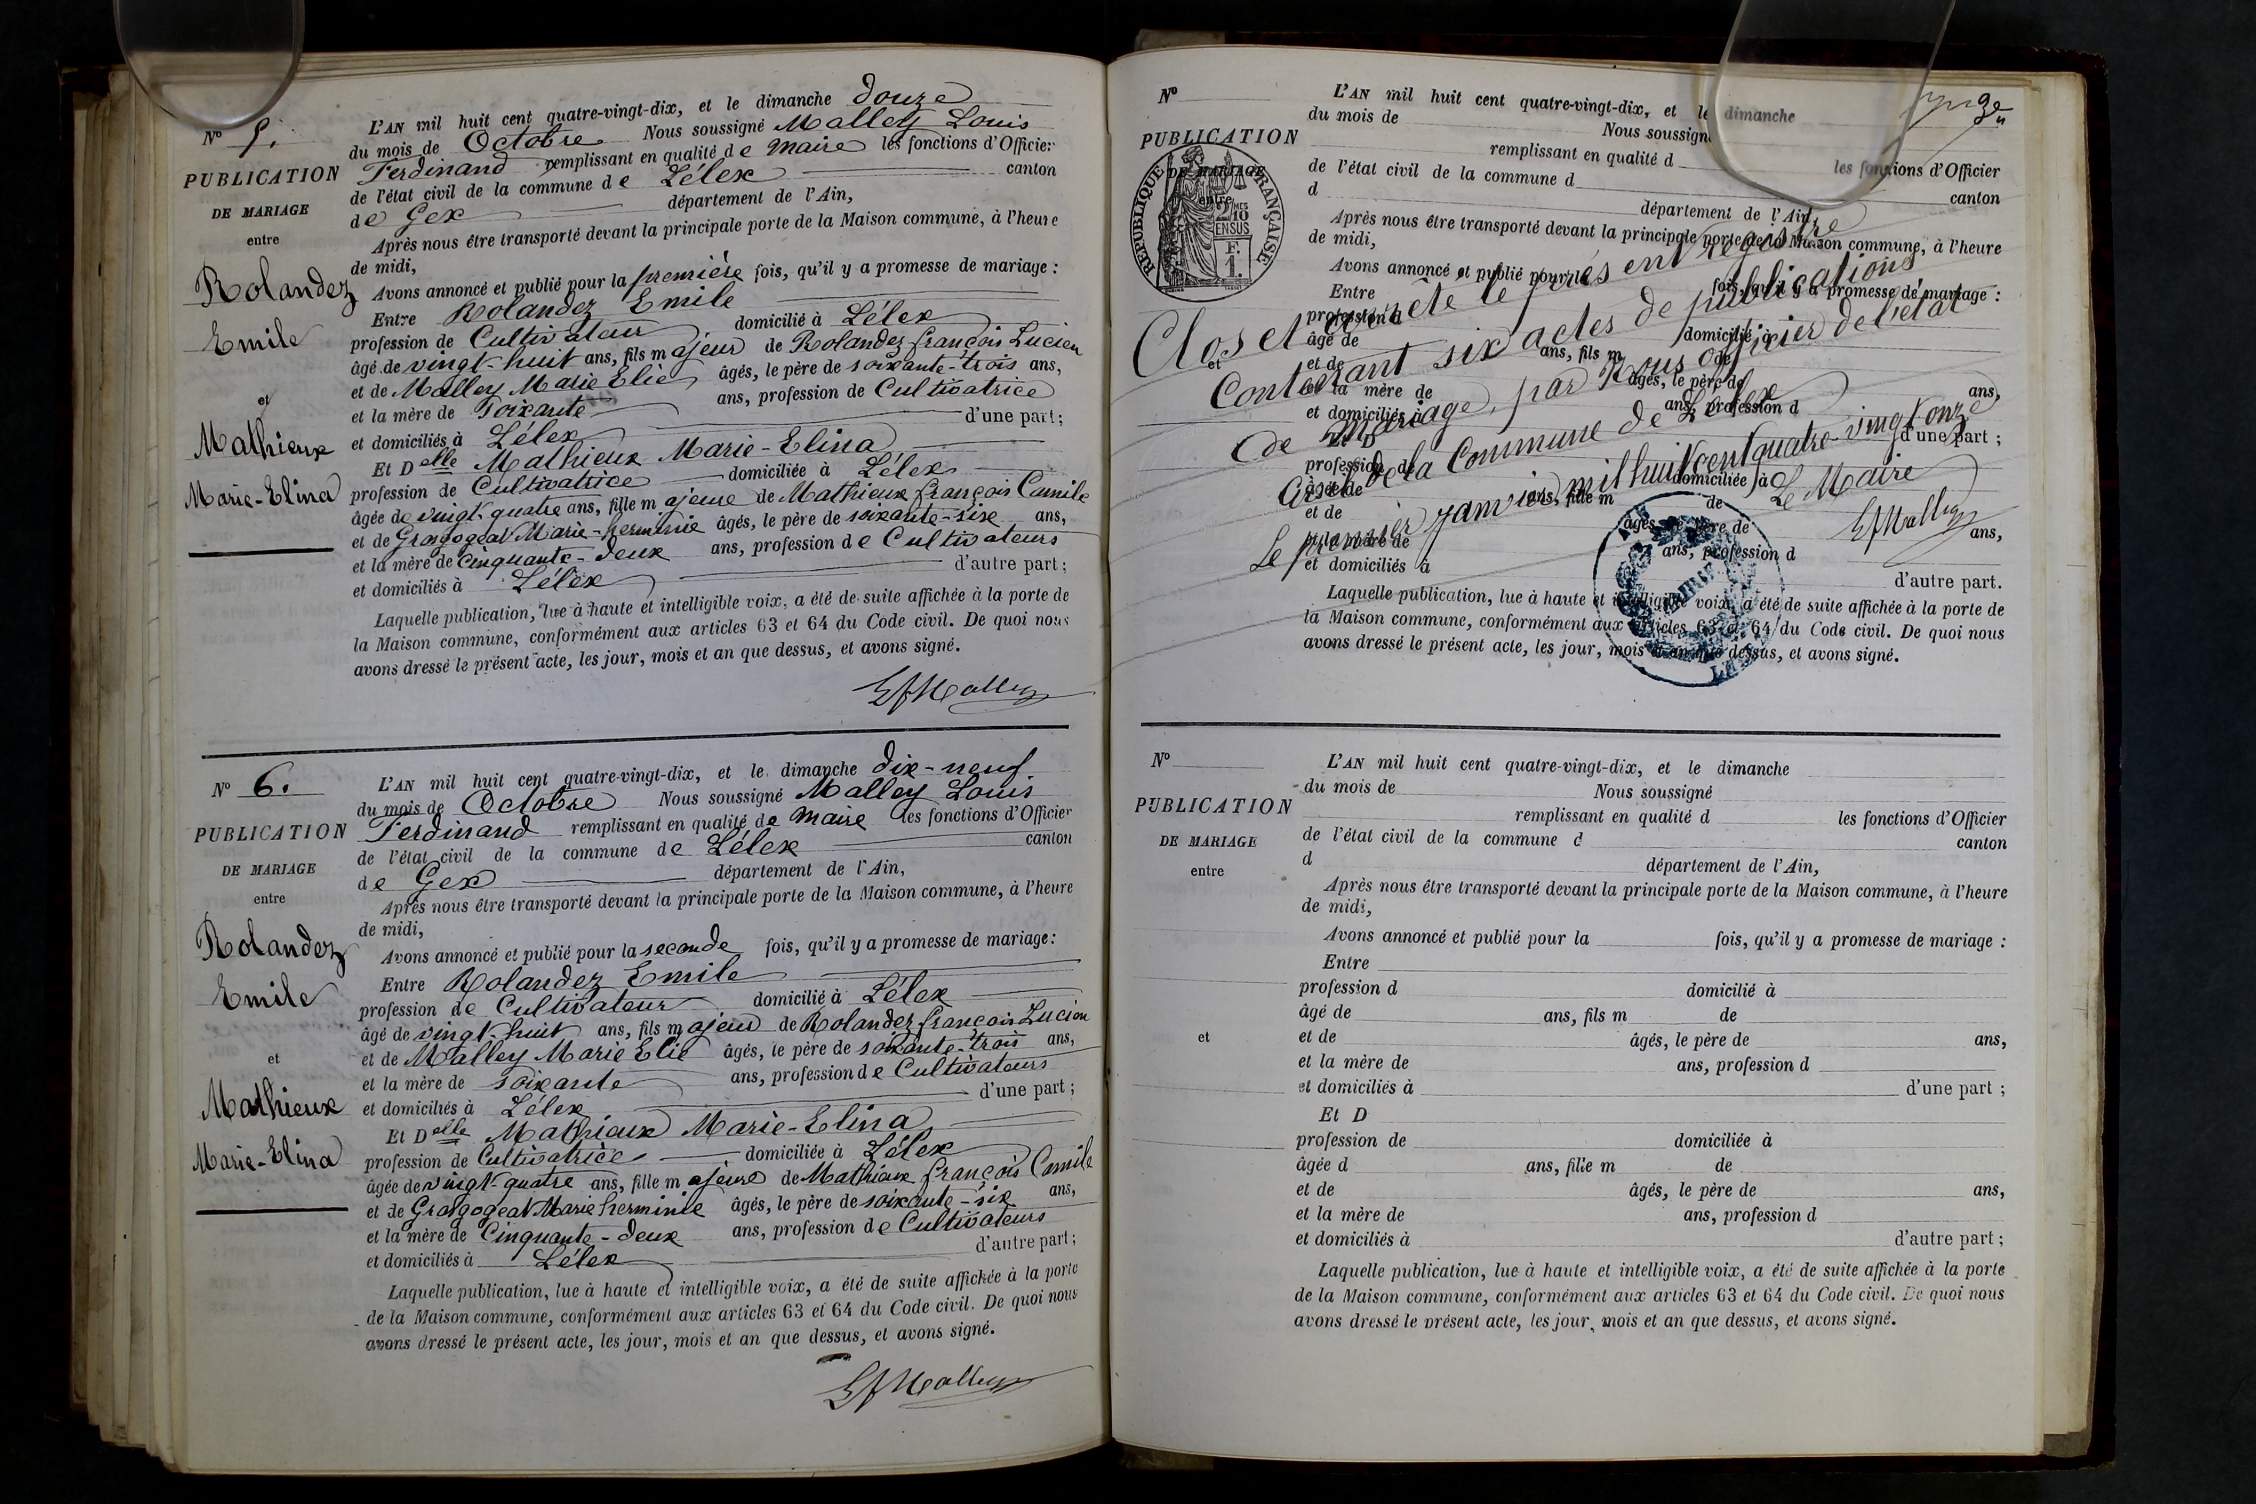 Nº 5.
PUBLICATION
DE MARIAGE
entre
Rolandez
Emile
et
Mathieux
Marie-Elina
L'AN mil huit cent quatre-vingt-dix, et le dimanche douze
du mois de Octobre Nous soussigné Malley Louis
Ferdinand remplissant en qualité de maire les fonctions d'Officier
de l'état civil de la commune de Lélex canton
de Gex département de l'Ain,
Après nous être transporté devant la principale porte de la Maison commune, à l'heure
de midi,
Avons annoncé et publié pour la première fois, qu'il y a promesse de mariage :
Entre Rolandez Emile
profession de Cultivateur domicilié à Lélex
âgé de vingt-huit ans, fils majeur de Rolandez françois Lucien
et de Malley Marie Elie âgés, le père de soixante-trois ans,
et la mère de soixante ans, profession de Cultivatrice
et domiciliés à Lélex d'une part;
Et Delle Mathieux Marie-Elina
profession de Cultivatrice domiciliée à Lélex
âgée de vingt-quatre ans, fille majeure de Mathieux françois Camile
et de Grosgogeat Marie-herminie âgés, le père de soixante-six ans,
et la mère de Cinquante-deux ans, profession de Cultivateurs
et domiciliés à Lélex d'autre part;
Laquelle publication, lue à haute et intelligible voix, a été de suite affichée à la porte de
la Maison commune, conformément aux articles 63 et 64 du Code civil. De quoi nous
avons dressé le présent acte, les jour, mois et an que dessus, et avons signé.
LfMalley
Nº 6.
PUBLICATION
DE MARIAGE
entre
Rolandez
Emile
et
Mathieux
Marie-Elina
L'AN mil huit cent quatre-vingt-dix, et le dimanche dix-neuf
du mois de Octobre Nous soussigné Malley Louis
Ferdinand remplissant en qualité de maire les fonctions d'Officier
de l'état civil de la commune de Lélex canton
de Gex département de l'Ain,
Après nous être transporté devant la principale porte de la Maison commune, à l'heure
de midi,
Avons annoncé et publié pour la seconde fois, qu'il y a promesse de mariage:
Entre Rolandez Emile
profession de Cultivateur domicilié à Lélex
âgé de vingt-huit ans, fils majeur de Rolandez françois Lucien
et de Malley Marie Elie âgés, le père de soixante-trois ans,
et la mère de soixante ans, profession de Cultivateurs
et domiciliés à Lélex d'une part ;
Et Delle Mathieux Marie-Elina
profession de Cultivatrice domiciliée à Lélex
âgée de vingt-quatre ans, fille majeure de Mathieux françois Camile
et de Grosgogeat Marie herminie âgés, le père de soixante-six ans,
et la mère de Cinquante-deux ans, profession de Cultivateurs
et domiciliés à Lélex d'autre part;
Laquelle publication, lue à haute et intelligible voix, a été de suite affichée à la porte
de la Maison commune, conformément aux articles 63 et 64 du Code civil. De quoi nous
avons dressé le présent acte, les jour, mois et an que dessus, et avons signé.
LfMalley
Nº
PUBLICATION
DE MARIAGE
entre
et
RÉPUBLIQUE FRANÇAISE
L'AN mil huit cent quatre-vingt-dix, et le dimanche
du mois de Nous soussigné
remplissant en qualité d les fonctions d'Officier
de l'état civil de la commune d canton
d département de l'Ain,
Après nous être transporté devant la principale porte de la Maison commune, à l'heure
de midi,
Avons annoncé et publié pour la fois, qu'il y a promesse de mariage :
Entre
profession d domicilié à
âgé de ans, fils m de
et de âgés, le père de ans,
et la mère de ans, profession d
et domiciliés à d'une part ;
Et D
profession de domiciliée à
âgée de ans, fille m de
et de âgés, le père de ans,
et la mère de ans, profession d
et domiciliés à d'autre part.
Laquelle publication, lue à haute et intelligible voix, a été de suite affichée à la porte de
la Maison commune, conformément aux articles 63 et 64 du Code civil. De quoi nous
avons dressé le présent acte, les jour, mois et an que dessus, et avons signé.
Clos et arrêté le présent registre
Contenant six actes de publications
de mariage, par Nous officier de l'état
Civil de la Commune de Lélex
Le premier janvier mil huit cent quatre-vingt onze
Le Maire
LfMalley
MAIRIE
Nº
PUBLICATION
DE MARIAGE
entre
et
L'AN mil huit cent quatre-vingt-dix, et le dimanche
du mois de Nous soussigné
remplissant en qualité d les fonctions d'Officier
de l'état civil de la commune d canton
d département de l'Ain,
Après nous être transporté devant la principale porte de la Maison commune, à l'heure
de midi,
Avons annoncé et publié pour la fois, qu'il y a promesse de mariage :
Entre
profession d domicilié à
âgé de ans, fils m de
et de âgés, le père de ans,
et la mère de ans, profession d
et domiciliés à d'une part ;
Et D
profession de domiciliée à
âgée d ans, fille m de
et de âgés, le père de ans,
et la mère de ans, profession d
et domiciliés à d'autre part ;
Laquelle publication, lue à haute et intelligible voix, a été de suite affichée à la porte
de la Maison commune, conformément aux articles 63 et 64 du Code civil. De quoi nous
avons dressé le présent acte, les jour, mois et an que dessus, et avons signé.